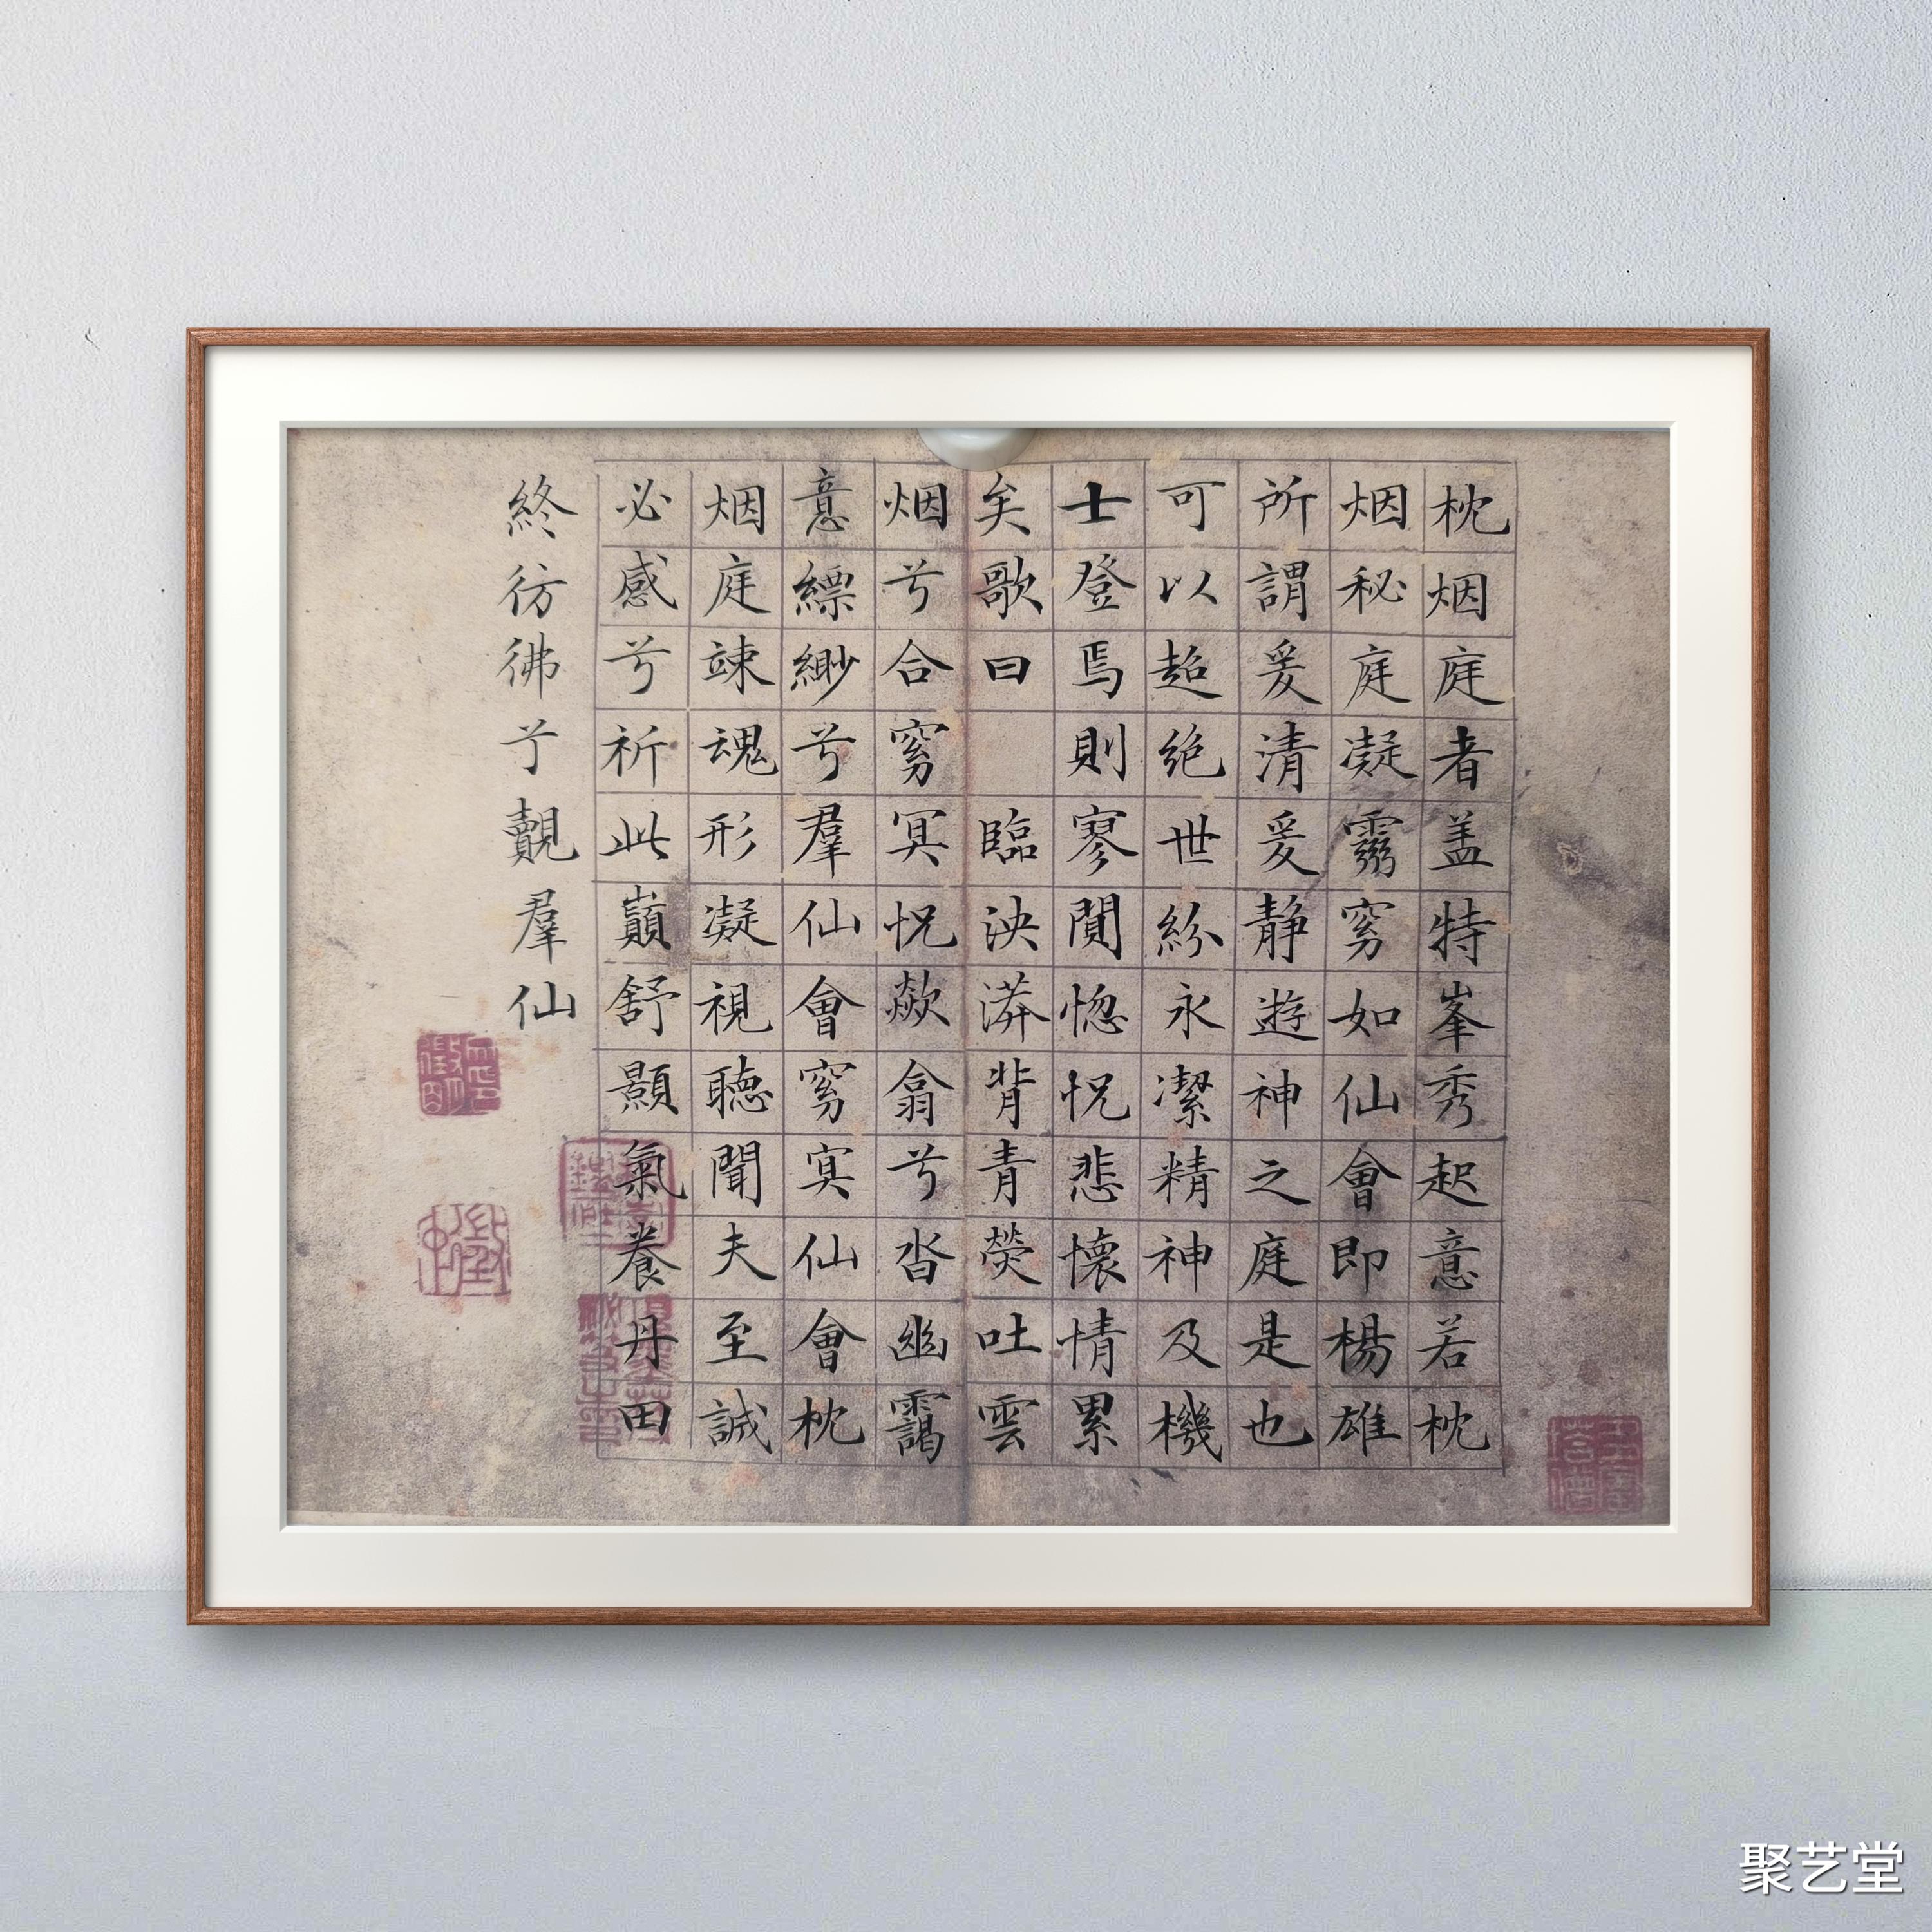 枕烟庭者盖特峯秀起意若枕
烟秘庭凝霛窮如仙會即楊雄
所謂爰清爰静遊神之庭是也
可以超絶世紛永潔精神及機
士登焉則寥閴惚怳悲懷情累
矣歌曰 臨泱漭背青熒吐雲
烟兮合窮冥怳歘翕兮沓幽靄
意縹緲兮羣仙會窮冥仙會枕
烟庭竦魂形凝視聽聞夫至誠
必感兮祈此巔舒顥氣養丹田
終彷彿兮覿羣仙
聚艺堂